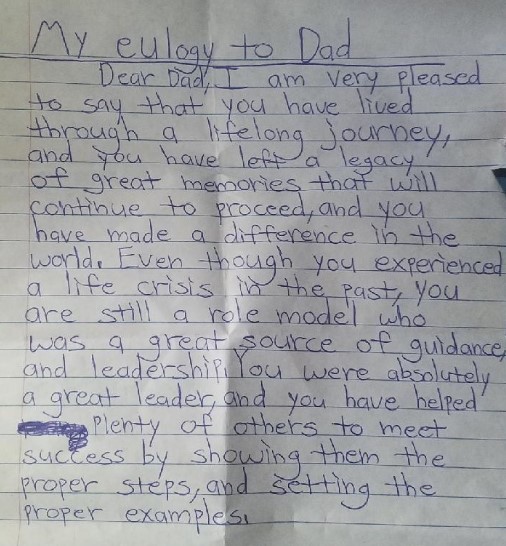 My eulogy to Dad
Dear Dad, I am very pleased
to say that you have lived
through a lifelong journey,
and you have left a legacy
of great memories that will
continue to proceed, and you
have made a difference in the
world. Even though you experienced
a life crisis in the past, you
are still a role model who
was a great source of guidance,
and leadership. You were absolutely
a great leader, and you have helped
Plenty of others to meet
success by showing them the
proper steps, and setting the
proper examples.